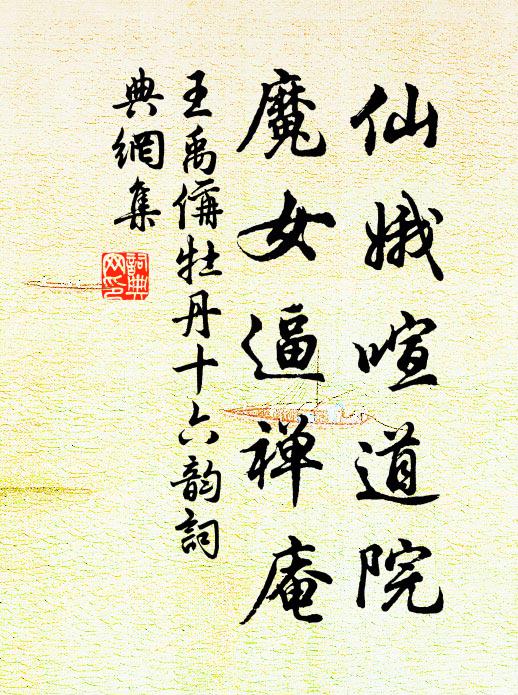 仙娥喧道院
魔女逼禅庵
王禹偁牡丹十六韵詞
典網集
詞典
网印